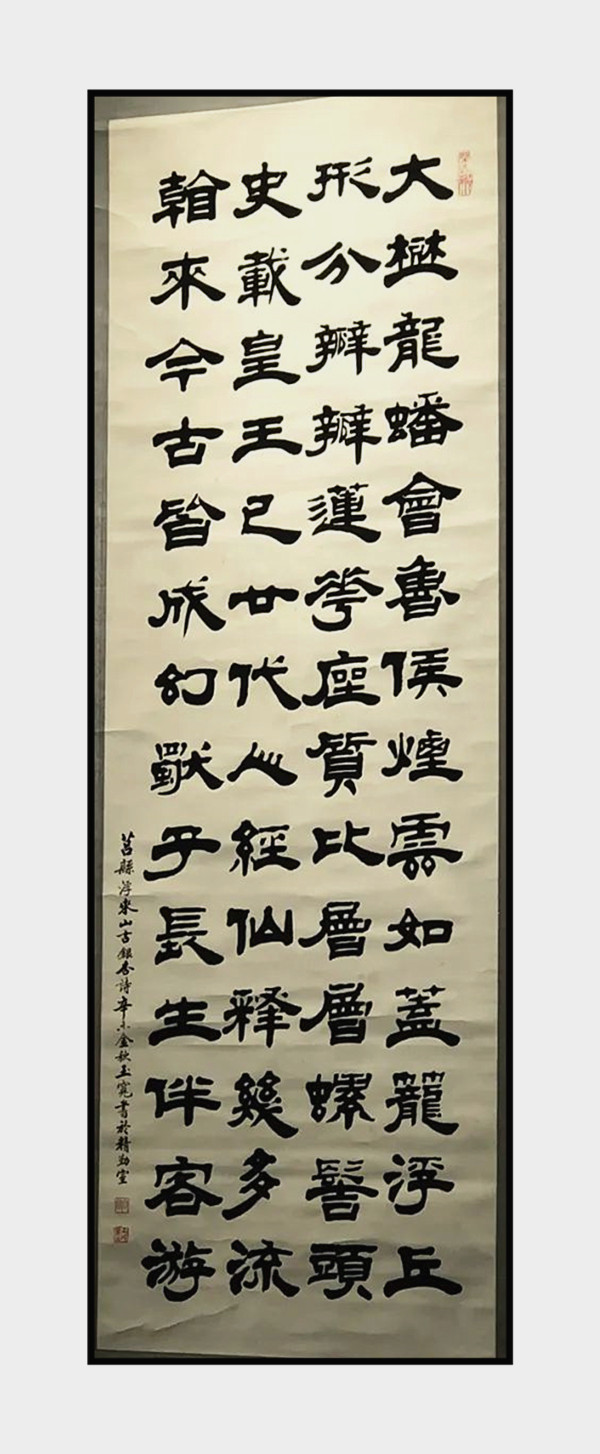 大樾龍蟠會魯侯煙雲如蓋籠浮丘
形分瓣瓣蓮花座質比層層螺髻頭
史載皇王已廿代人經仙釋幾多流
看來今古皆成幻獨子長生伴客游
莒縣浮來山古銀杏詩辛未金秋玉寬書於精勤室